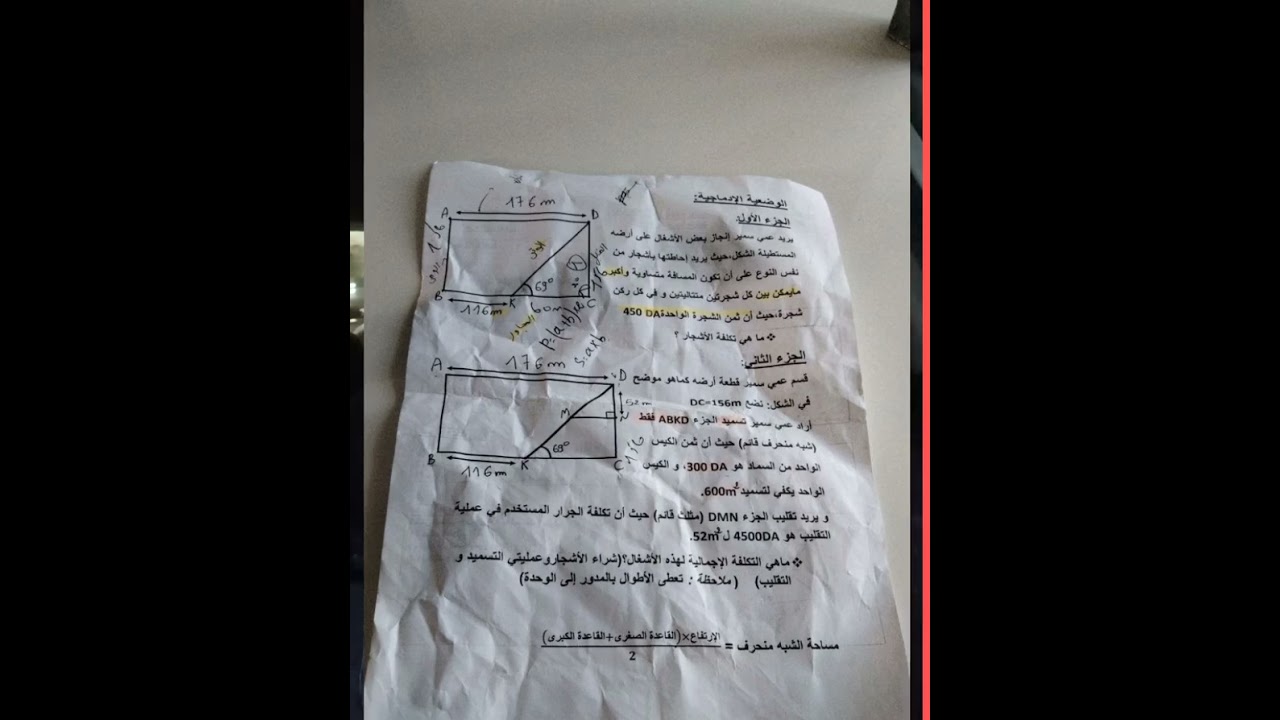 الوضعية الإدماجية:
الجزء الأول:
يريد عمي سمير إنجاز بعض الأشغال على أرضه
المستطيلة الشكل،حيث يريد إحاطتها بأشجار من
نفس النوع على أن تكون المسافة متساوية وأكبر
مايمكن بين كل شجرتين متتاليتين و في كل ركن
شجرة،حيث أن ثمن الشجرة الواحدة 450 DA
❖ ما هي تكلفة الأشجار ؟
A 176 m D
B 116 m K 69° 60m C
المجاور
P=(a+b)×2
S=a×b
الجزء الثاني:
قسم عمي سمير قطعة أرضه كماهو موضح
في الشكل: نضع DC=156m
أراد عمي سمير تسميد الجزء ABKD فقط
(شبه منحرف قائم) حيث أن ثمن الكيس
الواحد من السماد هو 300 DA، و الكيس
الواحد يكفي لتسميد 600m².
A 176m D
52m
M N
B 116m K 69° C
و يريد تقليب الجزء DMN (مثلث قائم) حيث أن تكلفة الجرار المستخدم في عملية
التقليب هو 4500DA ل 52m².
❖ ماهي التكلفة الإجمالية لهذه الأشغال؟(شراء الأشجاروعمليتي التسميد و
التقليب) (ملاحظة : تعطى الأطوال بالمدور إلى الوحدة)
مساحة الشبه منحرف = الإرتفاع×(القاعدة الصغرى+القاعدة الكبرى)
2